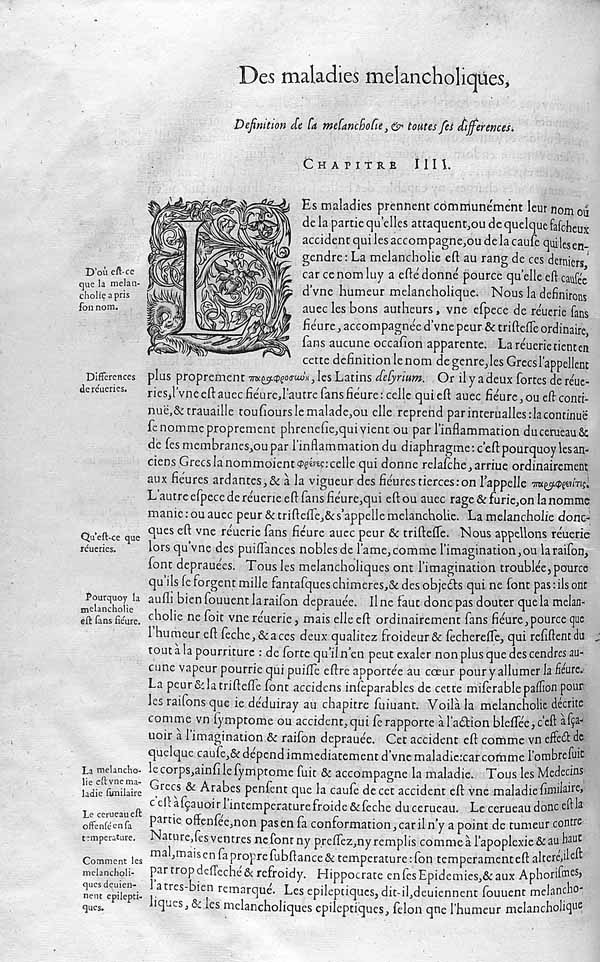 Des maladies melancholiques,
Definition de la melancholie, & toutes ses differences.
CHAPITRE IIII.
LEs maladies prennent communément leur nom ou
de la partie qu'elles attaquent, ou de quelque fascheux
accident qui les accompagne, ou de la cause qui les en-
gendre: La melancholie est au rang de ces derniers,
car ce nom luy a esté donné pource qu'elle est causée
d'vne humeur melancholique. Nous la definirons
auec les bons autheurs, vne espece de réuerie sans
fiéure, accompagnée d'vne peur & tristesse ordinaire,
sans aucune occasion apparente. La réuerie tient en
cette definition le nom de genre, les Grecs l'appellent
plus proprement παραφροσύνη, les Latins delyrium. Or il y a deux sortes de réue-
ries, l'vne est auec fiéure, l'autre sans fiéure: celle qui est auec fiéure, ou est conti-
nuë, & trauaille tousiours le malade, ou elle reprend par interualles: la continuë
se nomme proprement phrenesie, qui vient ou par l'inflammation du cerueau &
de ses membranes, ou par l'inflammation du diaphragme: c'est pourquoy les an-
ciens Grecs la nommoient φρένες: celle qui donne relasche, arriue ordinairement
aux fiéures ardantes, & à la vigueur des fiéures tierces: on l'appelle παραφρενῖτις.
L'autre espece de réuerie est sans fiéure, qui est ou auec rage & furie, on la nomme
manie: ou auec peur & tristesse, & s'appelle melancholie. La melancholie donc-
ques est vne réuerie sans fiéure auec peur & tristesse. Nous appellons réuerie
lors qu'vne des puissances nobles de l'ame, comme l'imagination, ou la raison,
sont deprauées. Tous les melancholiques ont l'imagination troublée, pource
qu'ils se forgent mille fantasques chimeres, & des obiects qui ne sont pas: ils ont
aussi bien souuent la raison deprauée. Il ne faut donc pas douter que la melan-
cholie ne soit vne réuerie, mais elle est ordinairement sans fiéure, pource que
l'humeur est seche, & a ces deux qualitez froideur & secheresse, qui resistent du
tout à la pourriture: de sorte qu'il n'en peut exaler non plus que des cendres au-
cune vapeur pourrie qui puisse estre apportée au cœur pour y allumer la fiéure.
La peur & la tristesse sont accidens inseparables de cette miserable passion pour
les raisons que ie déduiray au chapitre suiuant. Voilà la melancholie décrite
comme vn symptome ou accident, qui se rapporte à l'action blessée, c'est à sça-
uoir à l'imagination & raison deprauée. Cet accident est comme vn effect de
quelque cause, & dépend immediatement d'vne maladie: car comme l'ombre suit
le corps, ainsi le symptome suit & accompagne la maladie. Tous les Medecins
Grecs & Arabes pensent que la cause de cet accident est vne maladie similaire,
c'est à sçauoir l'intemperature froide & seche du cerueau. Le cerueau donc est la
partie offensée, non pas en sa conformation, car il n'y a point de tumeur contre
Nature, ses ventres ne sont ny pressez, ny remplis comme à l'apoplexie & au haut
mal, mais en sa propre substance & temperature: son temperament est alteré, il est
par trop desseché & refroidy. Hippocrate en ses Epidemies, & aux Aphorismes,
l'a tres-bien remarqué. Les epileptiques, dit-il, deuiennent souuent melancho-
liques, & les melancholiques epileptiques, selon que l'humeur melancholique
D'où est-ce
que la melan-
cholie a pris
son nom.
Differences
de réueries.
Qu'est-ce que
réueries.
Pourquoy la
melancholie
est sans fiéure.
La melancho-
lie est vne ma-
ladie similaire
Le cerueau est
offensé en sa
temperature.
Comment les
melancholi-
ques deuien-
nent epilepti-
ques.